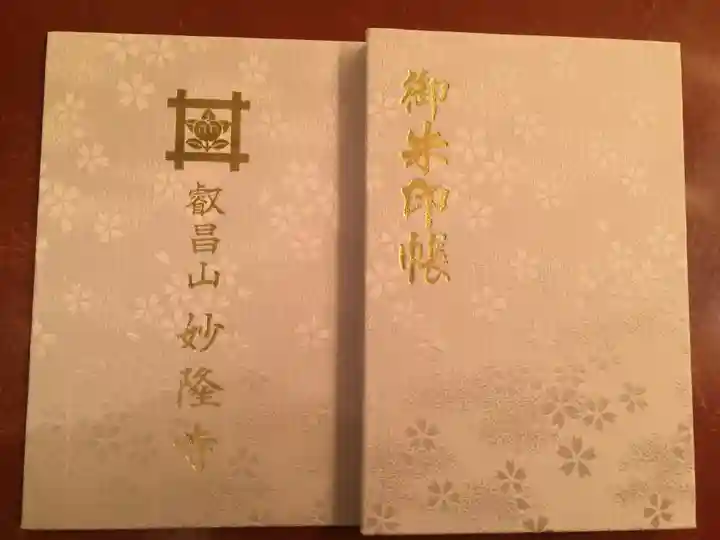 御朱印帳
叡昌山 妙隆寺